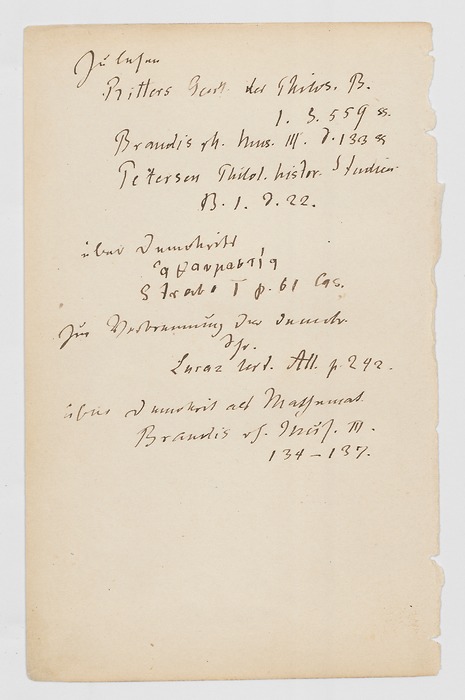 Zu lesen
Ritters Gesch. der Philos. B.
1. S. 559 ss.
Brandis rh. Mus. III. S. 133 ss
Petersen Philol. histor. Studien
B. 1. S. 22.
über Demokrits
ἀθαυμαστία
Strabo I p. 61 Cas.
Zur Verbrennung der Democr.
Schr.
Luzac lect. Att. p. 242.
über Demokrit als Mathemat.
Brandis rh. Mus. III.
134 – 137.